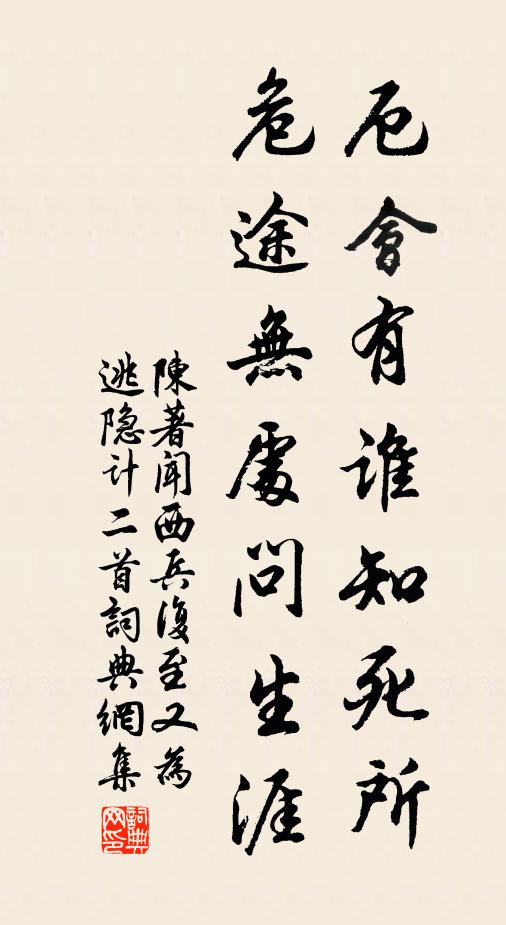 厄會有誰知死所
危途無處問生涯
陳著聞西兵復至又為
逃隐计二首詞典網集
詞典
网印